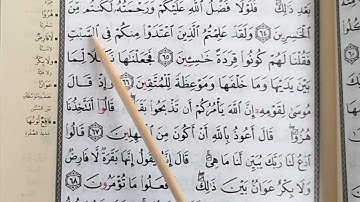 بَعْدِ ذَٰلِكَ ۖ فَلَوْلَا فَضْلُ اللَّهِ عَلَيْكُمْ وَرَحْمَتُهُ لَكُنْتُمْ مِنَ
الْخَاسِرِينَ ٦٤ وَلَقَدْ عَلِمْتُمُ الَّذِينَ اعْتَدَوْا مِنْكُمْ فِي السَّبْتِ
فَقُلْنَا لَهُمْ كُونُوا قِرَدَةً خَاسِئِينَ ٦٥ فَجَعَلْنَاهَا نَكَالًا لِمَا
بَيْنَ يَدَيْهَا وَمَا خَلْفَهَا وَمَوْعِظَةً لِلْمُتَّقِينَ ٦٦ وَإِذْ قَالَ
مُوسَىٰ لِقَوْمِهِ إِنَّ اللَّهَ يَأْمُرُكُمْ أَنْ تَذْبَحُوا بَقَرَةً ۖ قَالُوا أَتَتَّخِذُنَا
هُزُوًا ۖ قَالَ أَعُوذُ بِاللَّهِ أَنْ أَكُونَ مِنَ الْجَاهِلِينَ ٦٧ قَالُوا
ادْعُ لَنَا رَبَّكَ يُبَيِّنْ لَنَا مَا هِيَ ۚ قَالَ إِنَّهُ يَقُولُ إِنَّهَا بَقَرَةٌ لَا فَارِضٌ
وَلَا بِكْرٌ عَوَانٌ بَيْنَ ذَٰلِكَ ۖ فَافْعَلُوا مَا تُؤْمَرُونَ ٦٨